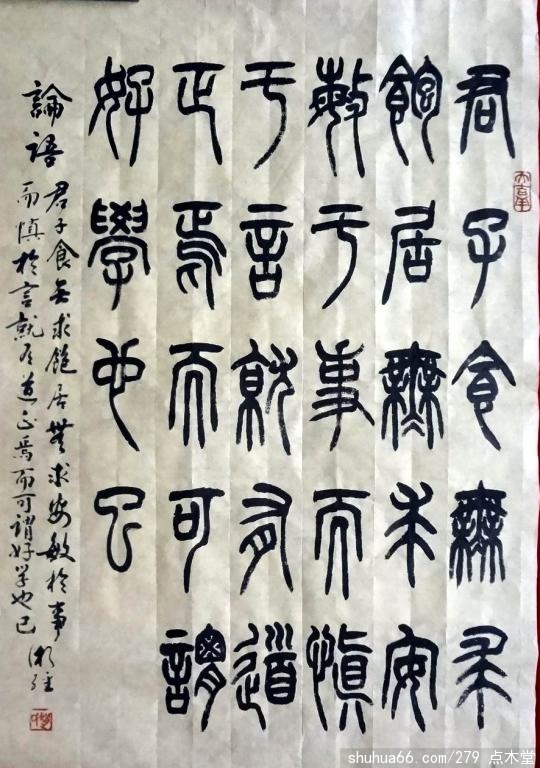 君子食無求
飽居無求安
敏于事而慎
于言就有道
正焉而可謂
好學也已
論語
君子食无求飽居無求安敏於事
而慎於言就有道正焉而可謂好学也已
shuhua66.com/279 点木堂